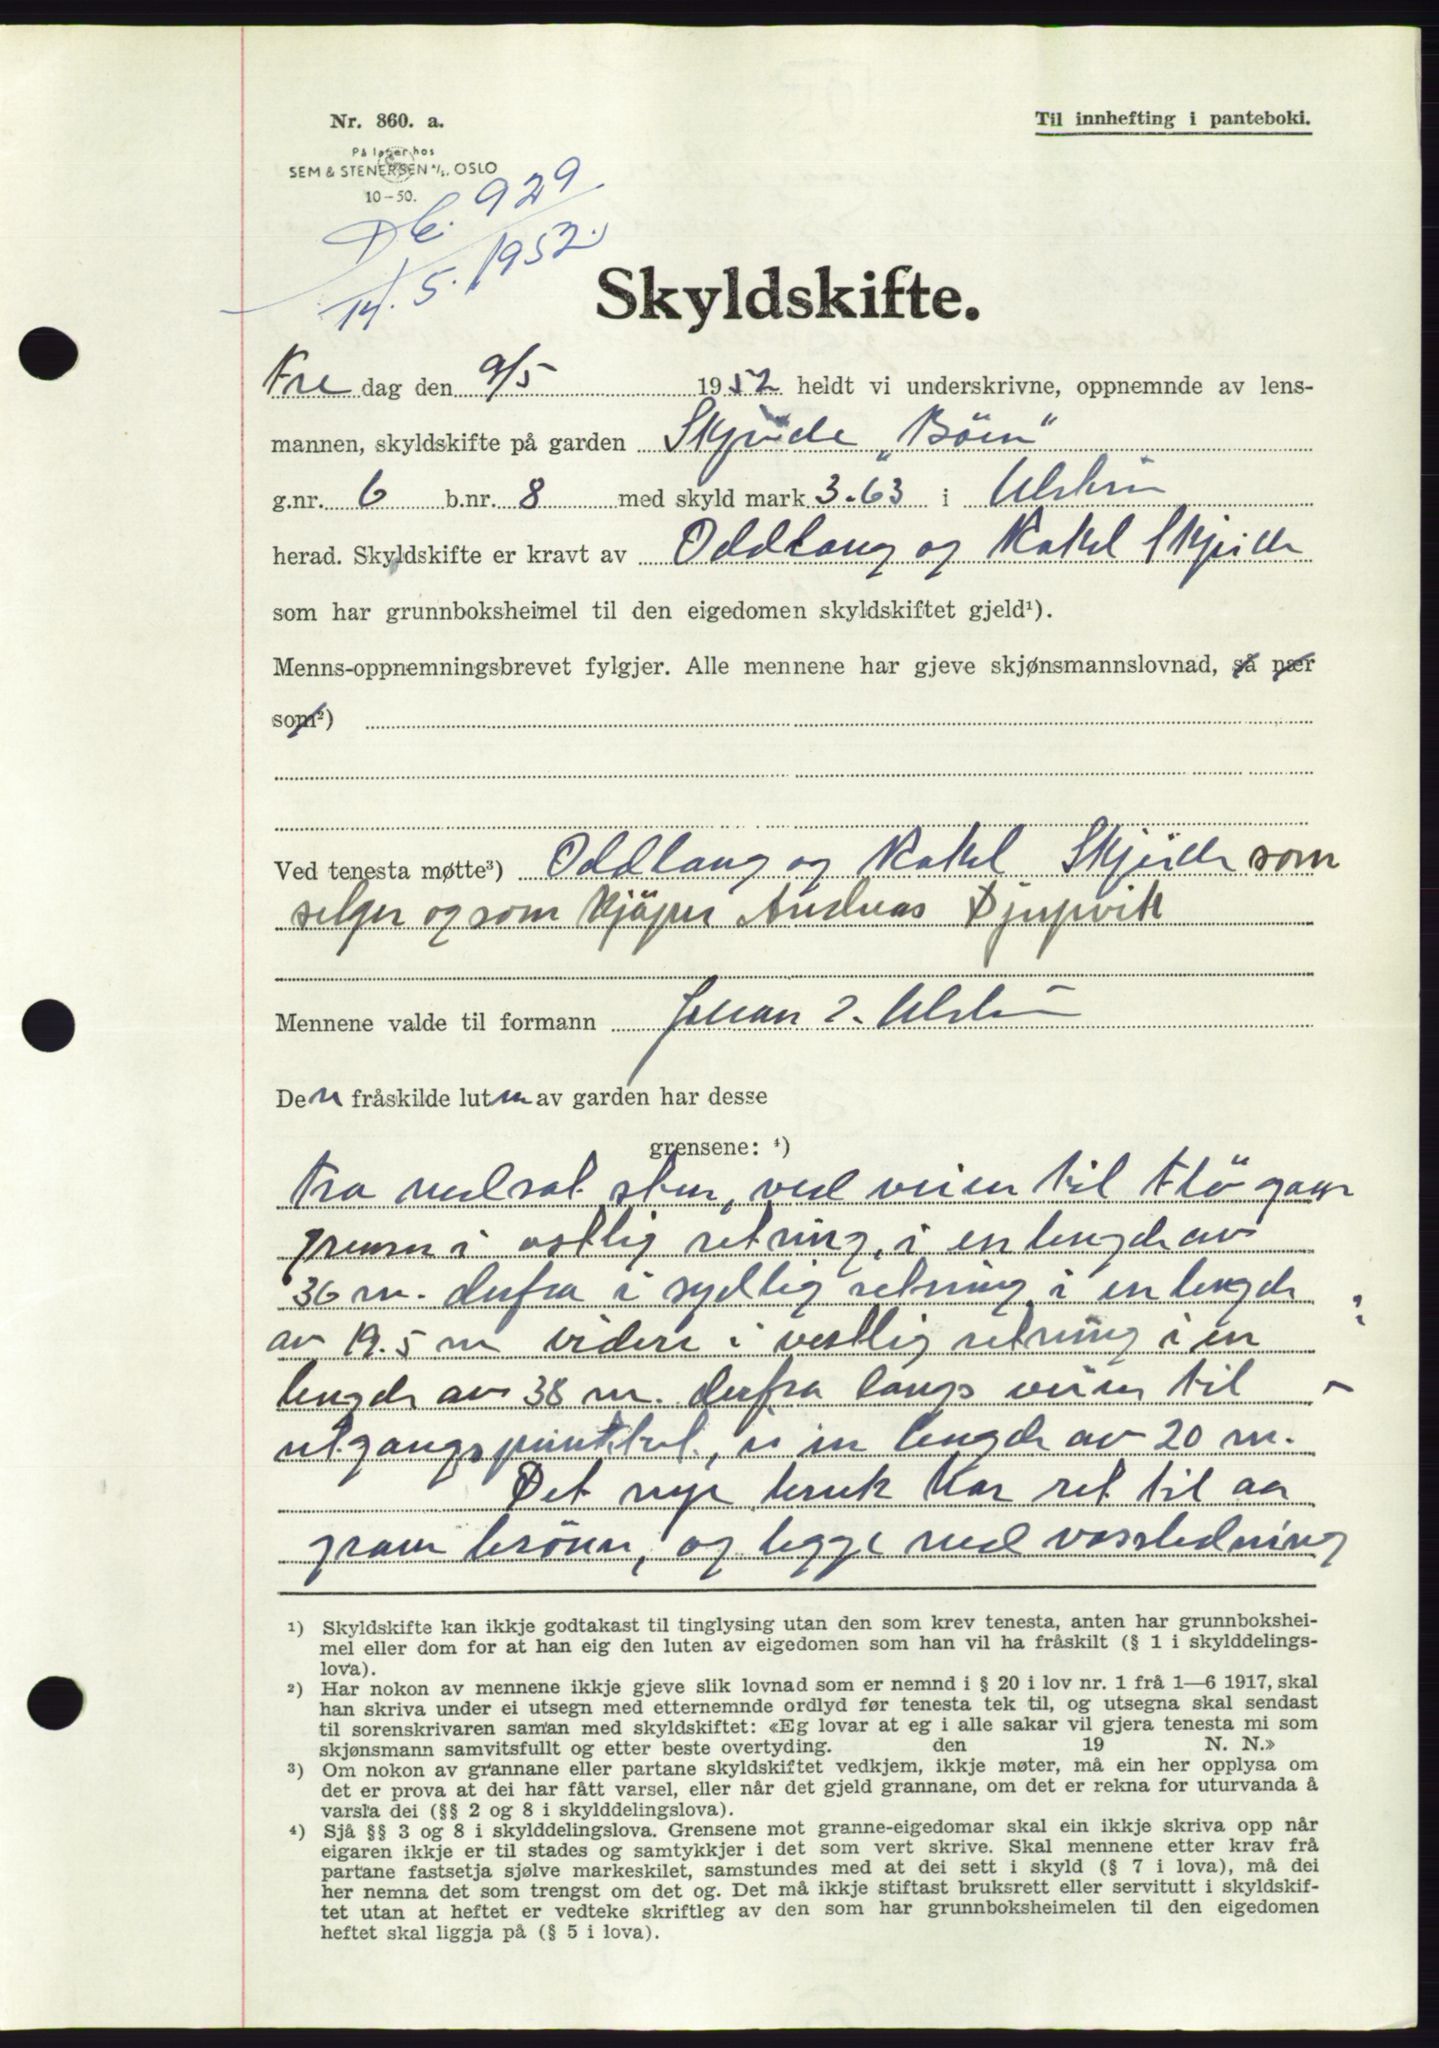 Nr. 860. a.
Til innhefting i panteboki.
På lager hos
SEM & STENERSEN A/S, OSLO
10-50.
929
14. 5. 1952.
Skyldskifte.
Fre dag den 9/5 1952 heldt vi underskrivne, oppnemnde av lens-
mannen, skyldskifte på garden Skjeide "Böen"
g.nr. 6 b.nr. 8 med skyld mark 3.63 i Ulstein
herad. Skyldskifte er kravt av Oddlaug og Rakel Skjeide
som har grunnboksheimel til den eigedomen skyldskiftet gjeld¹).
Menns-oppnemningsbrevet fylgjer. Alle mennene har gjeve skjønsmannslovnad, så nær
som²)
Ved tenesta møtte³) Oddlaug og Rakel Skjeide som
selger og som kjøper Andreas Djupvik
Mennene valde til formann Johan J. Ulstein
Den fråskilde luten av garden har desse
grensene: ⁴)
Fra nedsat sten, ved veien til Flö gaar
grensen i østlig retning, i en lengde av
36 m. derfra i sydlig retning i en lengde
av 19.5 m videre i vestlig retning i en
lengde av 38 m. derfra langs veien til
utgangspunktet, i en lengde av 20 m.
Det nye bruk har ret til aa
grave brönn, og legge ned vassledning
¹) Skyldskifte kan ikkje godtakast til tinglysing utan den som krev tenesta, anten har grunnbokshei-
mel eller dom for at han eig den luten av eigedomen som han vil ha fråskilt (§ 1 i skylddelings-
lova).
²) Har nokon av mennene ikkje gjeve slik lovnad som er nemnd i § 20 i lov nr. 1 frå 1—6 1917, skal
han skriva under ei utsegn med etternemnde ordlyd før tenesta tek til, og utsegna skal sendast
til sorenskrivaren saman med skyldskiftet: «Eg lovar at eg i alle sakar vil gjera tenesta mi som
skjønsmann samvitsfullt og etter beste overtyding. den 19 N. N.»
³) Om nokon av grannane eller partane skyldskiftet vedkjem, ikkje møter, må ein her opplysa om
det er prova at dei har fått varsel, eller når det gjeld grannane, om det er rekna for uturvanda å
varsla dei (§§ 2 og 8 i skylddelingslova).
⁴) Sjå §§ 3 og 8 i skylddelingslova. Grensene mot granne-eigedomar skal ein ikkje skriva opp når
eigaren ikkje er til stades og samtykkjer i det som vert skrive. Skal mennene etter krav frå
partane fastsetja sjølve markeskilet, samstundes med at dei sett i skyld (§ 7 i lova), må dei
her nemna det som trengst om det og. Det må ikkje stiftast bruksrett eller servitutt i skyldskif-
tet utan at heftet er vedteke skriftleg av den som har grunnboksheimelen til den eigedomen
heftet skal liggja på (§ 5 i lova).